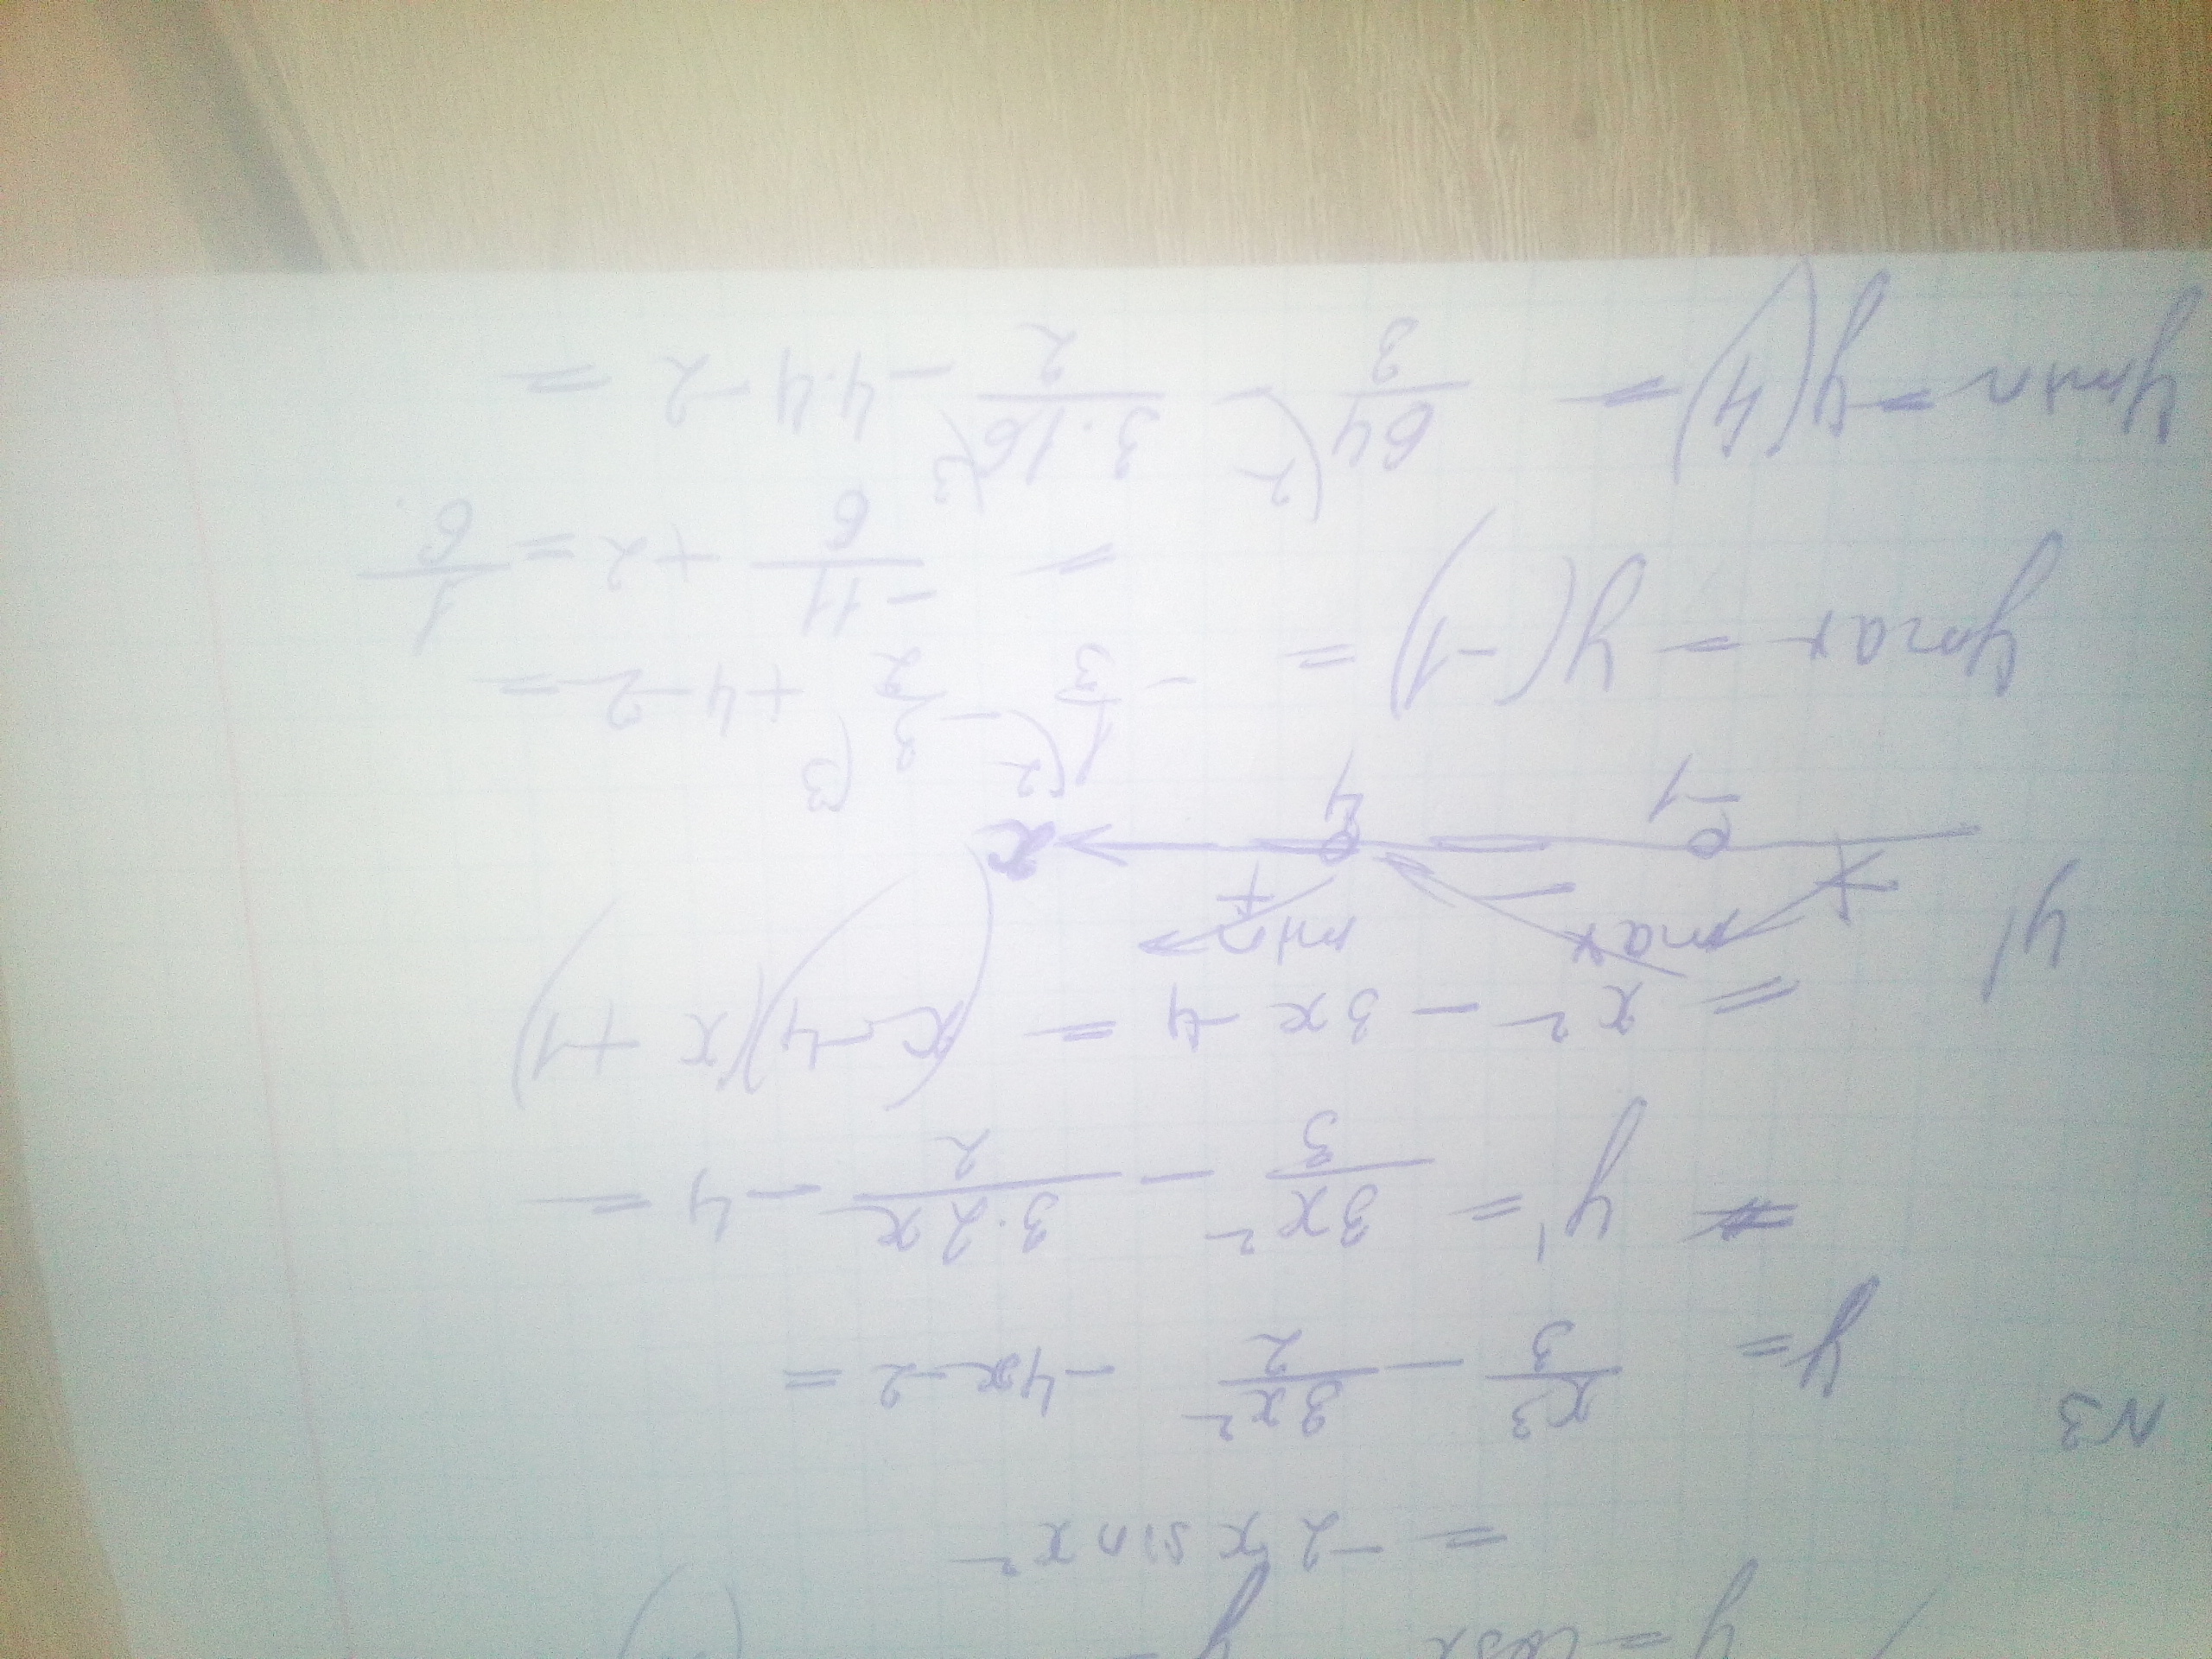 y = cosx
= -2x sin x²
N3
y = x³/3 - 3x²/2 - 4x - 2 =
= y' = 3x²/3 - 3·2x/2 - 4 =
= x² - 3x - 4 = (x - 4)(x + 1)
max min
y' + - +
-1 4 x
ymax = y(-1) = - 1/3 (2 - 3/2 (3 + 4 - 2 =
= -11/6 + 2 = 1/6
ymin = y(4) = 64/3 (2 - 3·16/2 (3 - 4·4 - 2 =